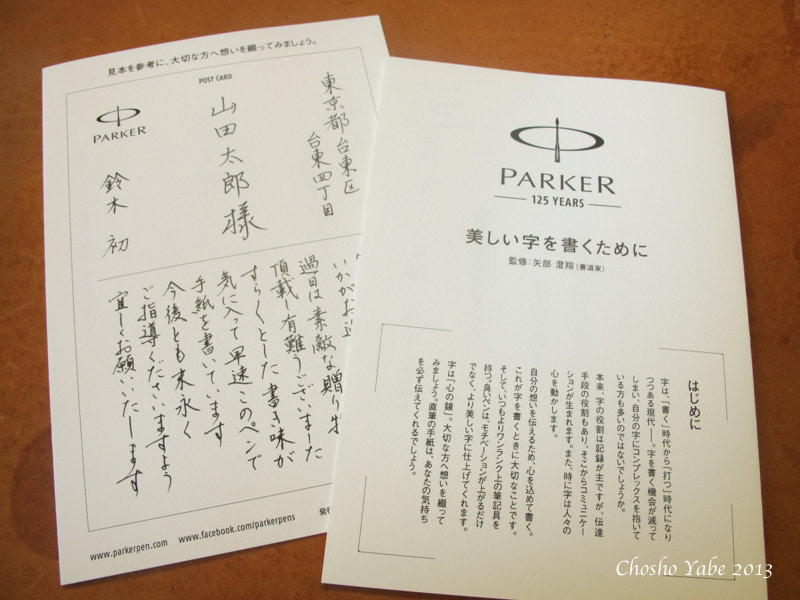 見本を参考に、大切な方へ想いを綴ってみましょう。
POST CARD
東京都台東区
台東四丁目
山田太郎様
PARKER
鈴木 初
いかがお
過日は素敵な贈り物
頂戴し有難うございました
すらすらとした書き味が
気に入って早速このペンで
手紙を書いています
今後とも末永く
ご指導くださいますよう
宜しくお願いいたします
www.parkerpen.com www.facebook.com/parkerpens
発行
PARKER
125 YEARS
美しい字を書くために
監修：矢部 澄翔（書道家）
はじめに
字は、「書く」時代から「打つ」時代になり
つつある現代――。字を書く機会が減って
しまい、自分の字にコンプレックスを抱いて
いる方も多いのではないでしょうか。
本来、字の役割は記録が主ですが、伝達
手段の役割もあり、そこからコミュニケー
ションが生まれます。また、時に字は人々の
心を動かします。
自分の想いを伝えるため、心を込めて書く。
これが字を書くときに大切なことです。
そして、いつもよりワンランク上の筆記具を
持つ。良いペンは、モチベーションが上がるだけ
でなく、より美しい字に仕上げてくれます。
字は「心の鏡」。大切な方へ想いを綴って
みましょう。直筆の手紙は、あなたの気持ち
を必ず伝えてくれるでしょう。
Chosho Yabe 2013